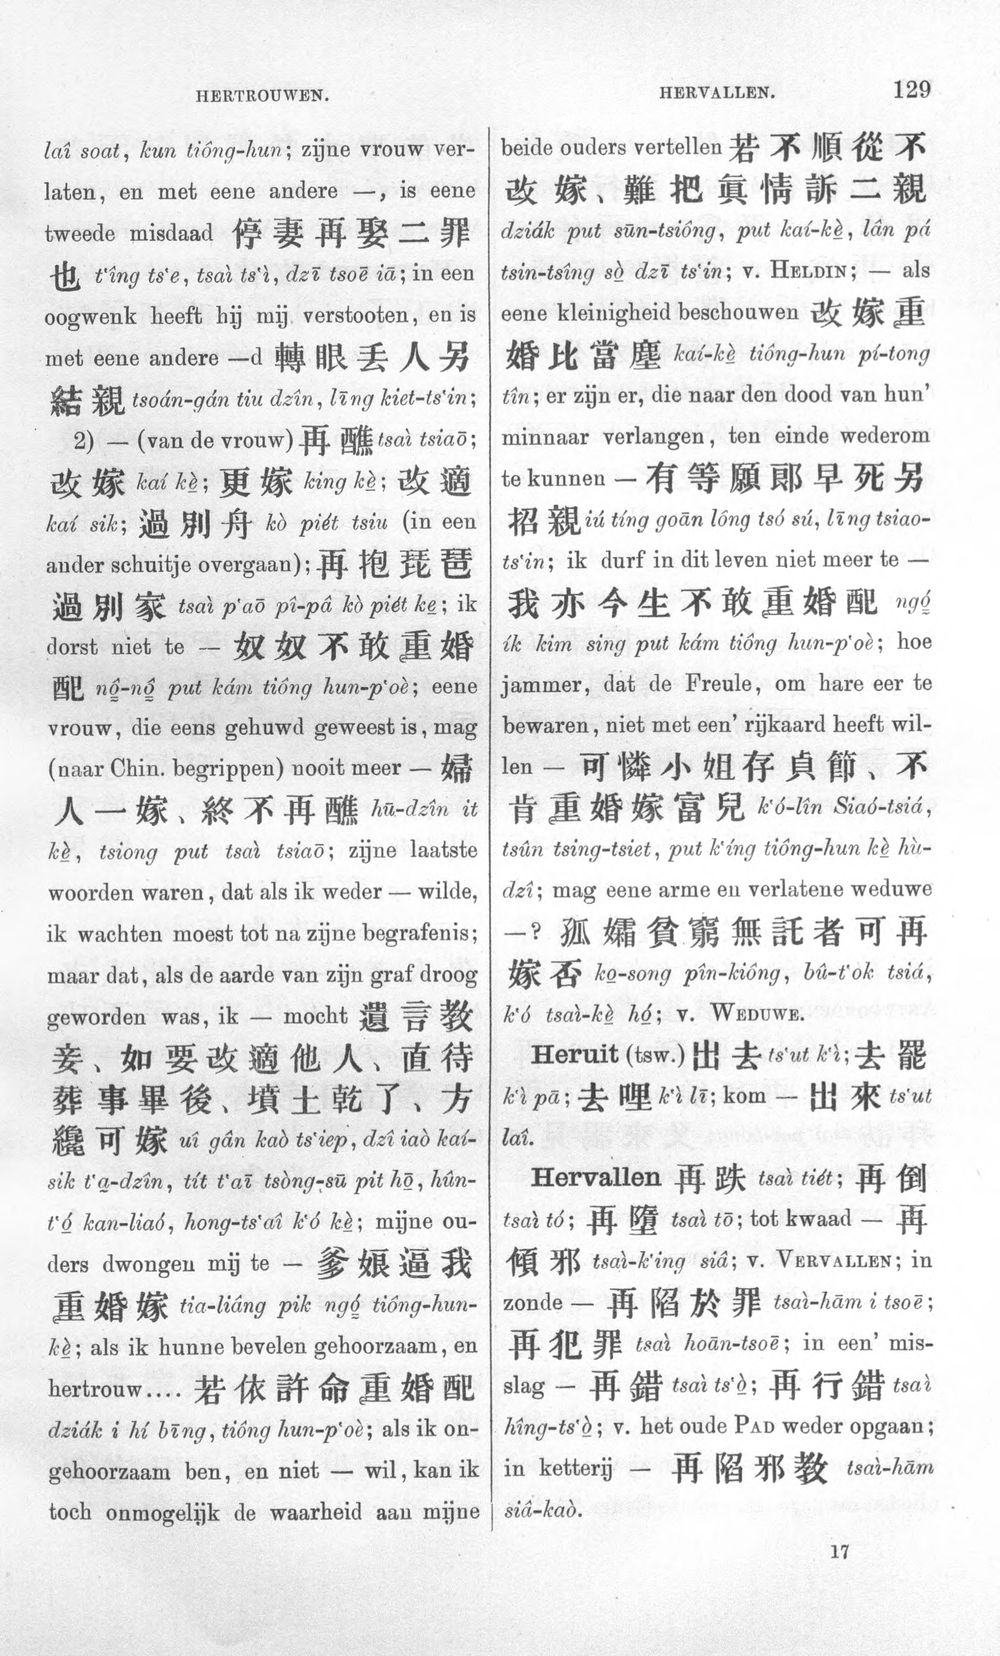 HERTROUWEN.
HERVALLEN.
129
laî soat, kun tiông-hun; zijne vrouw ver-
laten, en met eene andere —, is eene
tweede misdaad 停妻再娶二罪
也 t‘îng ts‘e, tsaì ts‘ì, dzī tsoē iā; in een
oogwenk heeft hij mij verstooten, en is
met eene andere —d 轉眼丢人另
結親 tsoán-gán tiu dzîn, līng kiet-ts‘in;
2) — (van de vrouw) 再醮 tsaì tsiaō;
改嫁 kaí kè̤; 更嫁 king kè̤; 改適
kaí sik; 過別舟 kò piét tsiu (in een
ander schuitje overgaan); 再抱琵琶
過別家 tsaì p‘aō pî-pâ kò piét ke̤; ik
dorst niet te — 奴奴不敢重婚
配 nô̤-nô̤ put kám tiông hun-p‘oè; eene
vrouw, die eens gehuwd geweest is, mag
(naar Chin. begrippen) nooit meer — 婦
人一嫁、終不再醮 hū-dzîn it
kè̤, tsiong put tsaì tsiaō; zijne laatste
woorden waren, dat als ik weder — wilde,
ik wachten moest tot na zijne begrafenis;
maar dat, als de aarde van zijn graf droog
geworden was, ik — mocht 遺言教
妾、如要改適他人、直待
葬事畢後、墳土乾了、方
纔可嫁 uî gân kaò ts‘iep, dzî iaò kaí-
sik t‘a̤-dzîn, tít t‘aī tsòng-sū pit hō̤, hûn-
t‘ó̤ kan-liaó, hong-ts‘aî k‘ó kè̤; mijne ou-
ders dwongen mij te — 爹娘逼我
重婚嫁 tia-liâng pik ngó̤ tiông-hun-
kè̤; als ik hunne bevelen gehoorzaam, en
hertrouw.... 若依許命重婚配
dziák i hí bīng, tiông hun-p‘oè; als ik on-
gehoorzaam ben, en niet — wil, kan ik
toch onmogelijk de waarheid aan mijne
beide ouders vertellen 若不順從不
改嫁、難把眞情訴二親
dziák put sūn-tsiông, put kaí-kè̤, lân pá
tsin-tsîng sò̤ dzī ts‘in; v. HELDIN; — als
eene kleinigheid beschouwen 改嫁重
婚比當塵 kaí-kè̤ tiông-hun pí-tong
tîn; er zijn er, die naar den dood van hun’
minnaar verlangen, ten einde wederom
te kunnen — 有等願郎早死另
招親 iú tíng goān lông tsó sú, līng tsiao-
ts‘in; ik durf in dit leven niet meer te —
我亦今生不敢重婚配 ngó̤
ík kim sing put kám tiông hun-p‘oè; hoe
jammer, dat de Freule, om hare eer te
bewaren, niet met een’ rijkaard heeft wil-
len — 可憐小姐存貞節、不
肯重婚嫁富兒 k‘ó-lîn Siaó-tsiá,
tsûn tsing-tsiet, put k‘íng tiông-hun kè̤ hù-
dzî; mag eene arme en verlatene weduwe
—? 孤孀貧窮無託者可再
嫁否 ko̤-song pîn-kiông, bû-t‘ok tsiá,
k‘ó tsaì-kè̤ hó̤; v. WEDUWE.
Heruit (tsw.) 出去 ts‘ut k‘ì; 去罷
k‘ì pā; 去哩 k‘ì lī; kom — 出來 ts‘ut
laî.
Hervallen 再跌 tsaì tiét; 再倒
tsaì tó; 再墮 tsaì tō; tot kwaad — 再
傾邪 tsaì-k‘ing siâ; v. VERVALLEN; in
zonde — 再陷於罪 tsaì-hām i tsoē;
再犯罪 tsaì hoān-tsoē; in een’ mis-
slag — 再錯 tsaì ts‘ò̤; 再行錯 tsaì
hîng-ts‘ò̤; v. het oude PAD weder opgaan;
in ketterij — 再陷邪教 tsaì-hām
siâ-kaò.
17